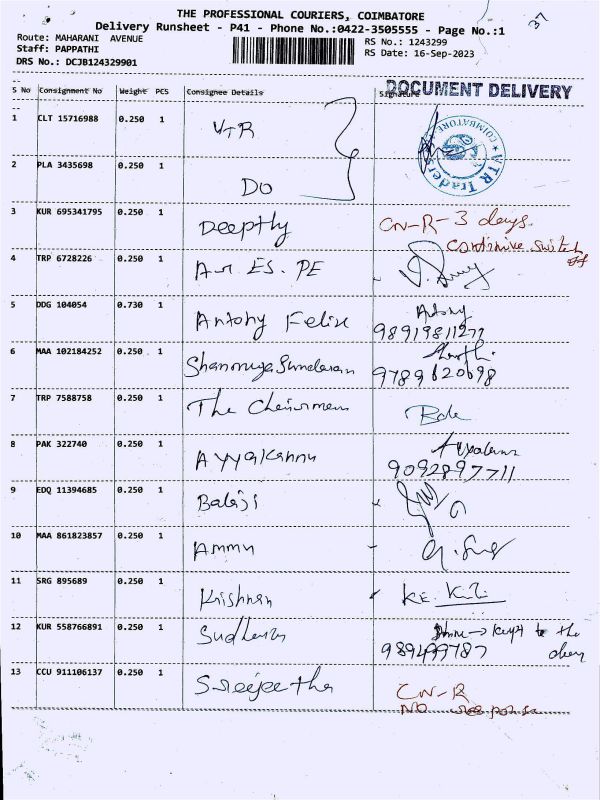 THE PROFESSIONAL COURIERS, COIMBATORE
37
Delivery Runsheet - P41 - Phone No.:0422-3505555 - Page No.:1
Route: MAHARANI AVENUE
RS No.: 1243299
Staff: PAPPATHI
RS Date: 16-Sep-2023
DRS No.: DCJB124329901
S No Consignment No Weight PCS Consignee Details Signature
DOCUMENT DELIVERY
1 CLT 15716988 0.250 1 VTR
VTR Traders
COIMBATORE
2 PLA 3435698 0.250 1 DO
3 KUR 695341795 0.250 1 Deepthy CN-R-3 days.
4 TRP 6728226 0.250 1
5 DDG 104054 0.730 1 Antony Felix Antony
98919811277
6 MAA 102184252 0.250 1 Shanmuga Sundaram
9789620698
7 TRP 7588758 0.250 1 The Chairman
8 PAK 322740 0.250 1 Ayyakannu
9092897711
9 EDQ 11394685 0.250 1 Balaji
10 MAA 861823857 0.250 1 Ammu
11 SRG 895689 0.250 1 Krishnan
12 KUR 558766891 0.250 1 → kept to the
989499787
13 CCU 911106137 0.250 1 Sreejeetha CN-R
NO response